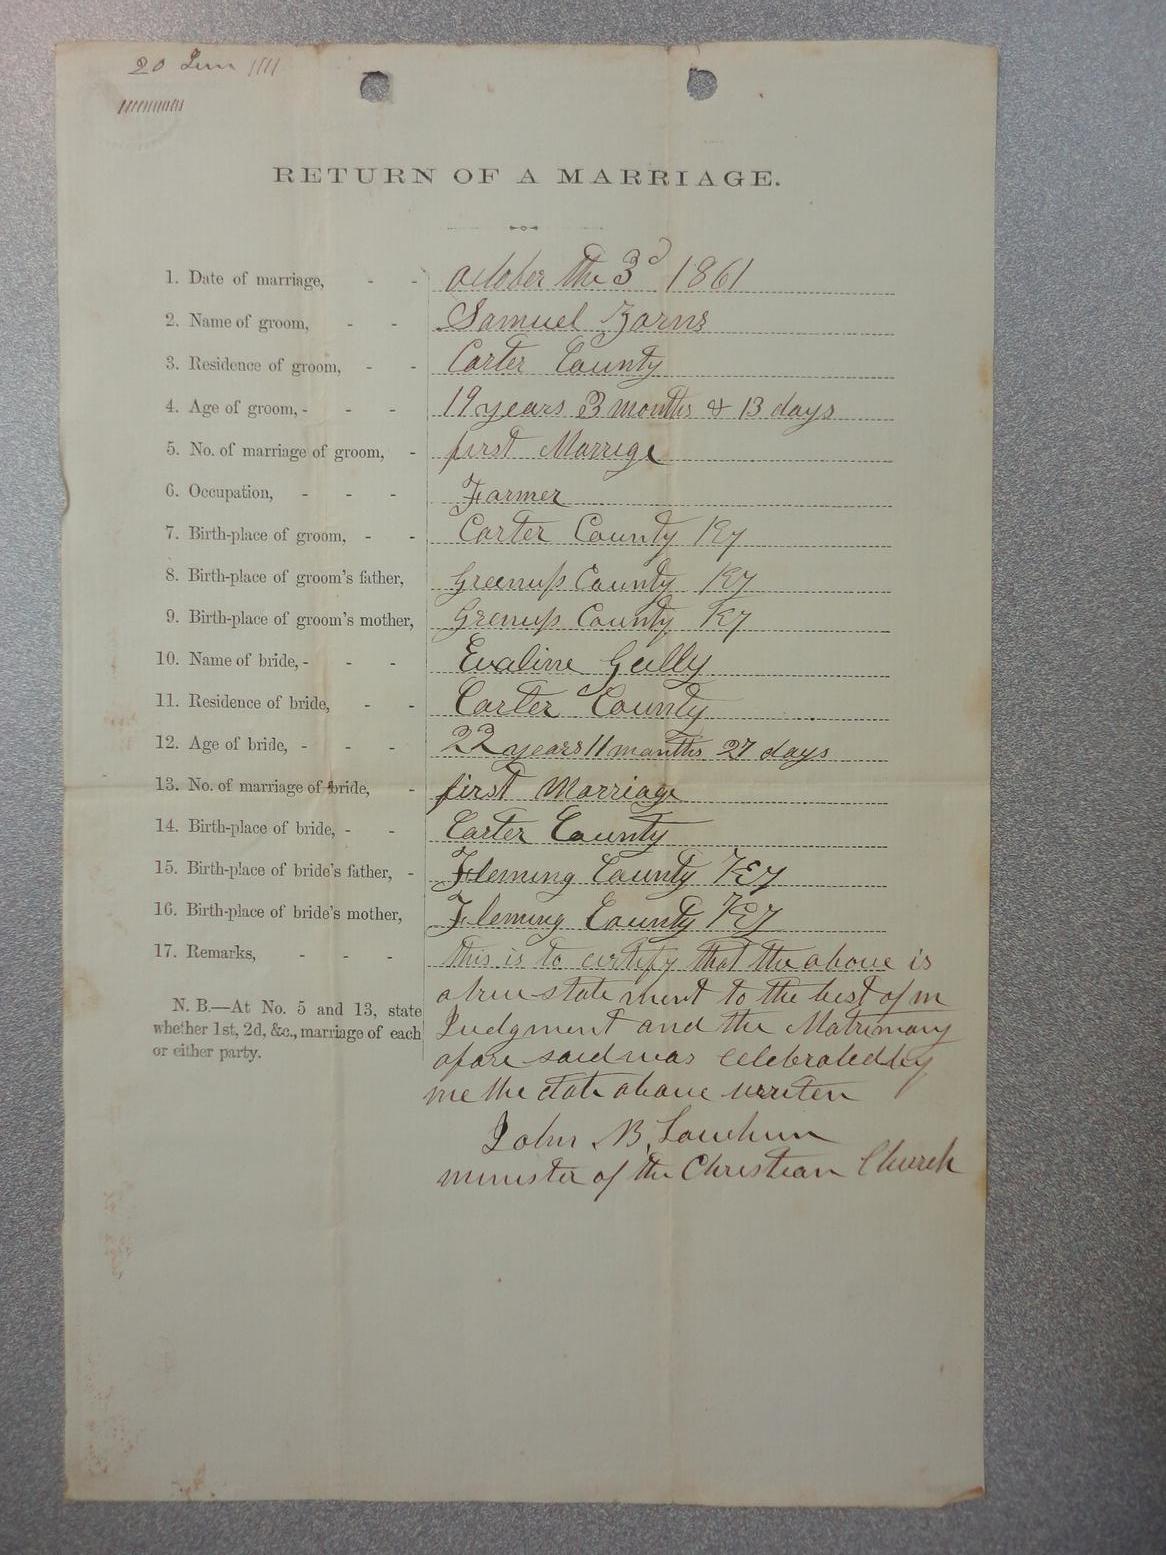 20
RETURN OF A MARRIAGE.
1. Date of marriage, - - October the 3d 1861
2. Name of groom, - - Samuel Zorns
3. Residence of groom, - - Carter County
4. Age of groom, - - - 19 years 3 months & 13 days
5. No. of marriage of groom, - first Marrige
6. Occupation, - - - Farmer
7. Birth-place of groom, - - Carter County Ky
8. Birth-place of groom's father, Greenup County Ky
9. Birth-place of groom's mother, Grenup County Ky
10. Name of bride, - - - Evaline Gully
11. Residence of bride, - - Carter County
12. Age of bride, - - - 22 years 11 months 27 days
13. No. of marriage of bride, - first Marriage
14. Birth-place of bride, - - Carter County
15. Birth-place of bride's father, - Fleming County Key
16. Birth-place of bride's mother, Fleming County Key
17. Remarks, - - - this is to certify that the above is
a true state ment to the best of m
Judgment and the Matrimony
afore said was celebrated by
me the date above written
John B.
minister of the Christian Church
N. B.—At No. 5 and 13, state
whether 1st, 2d, &c., marriage of each
or either party.